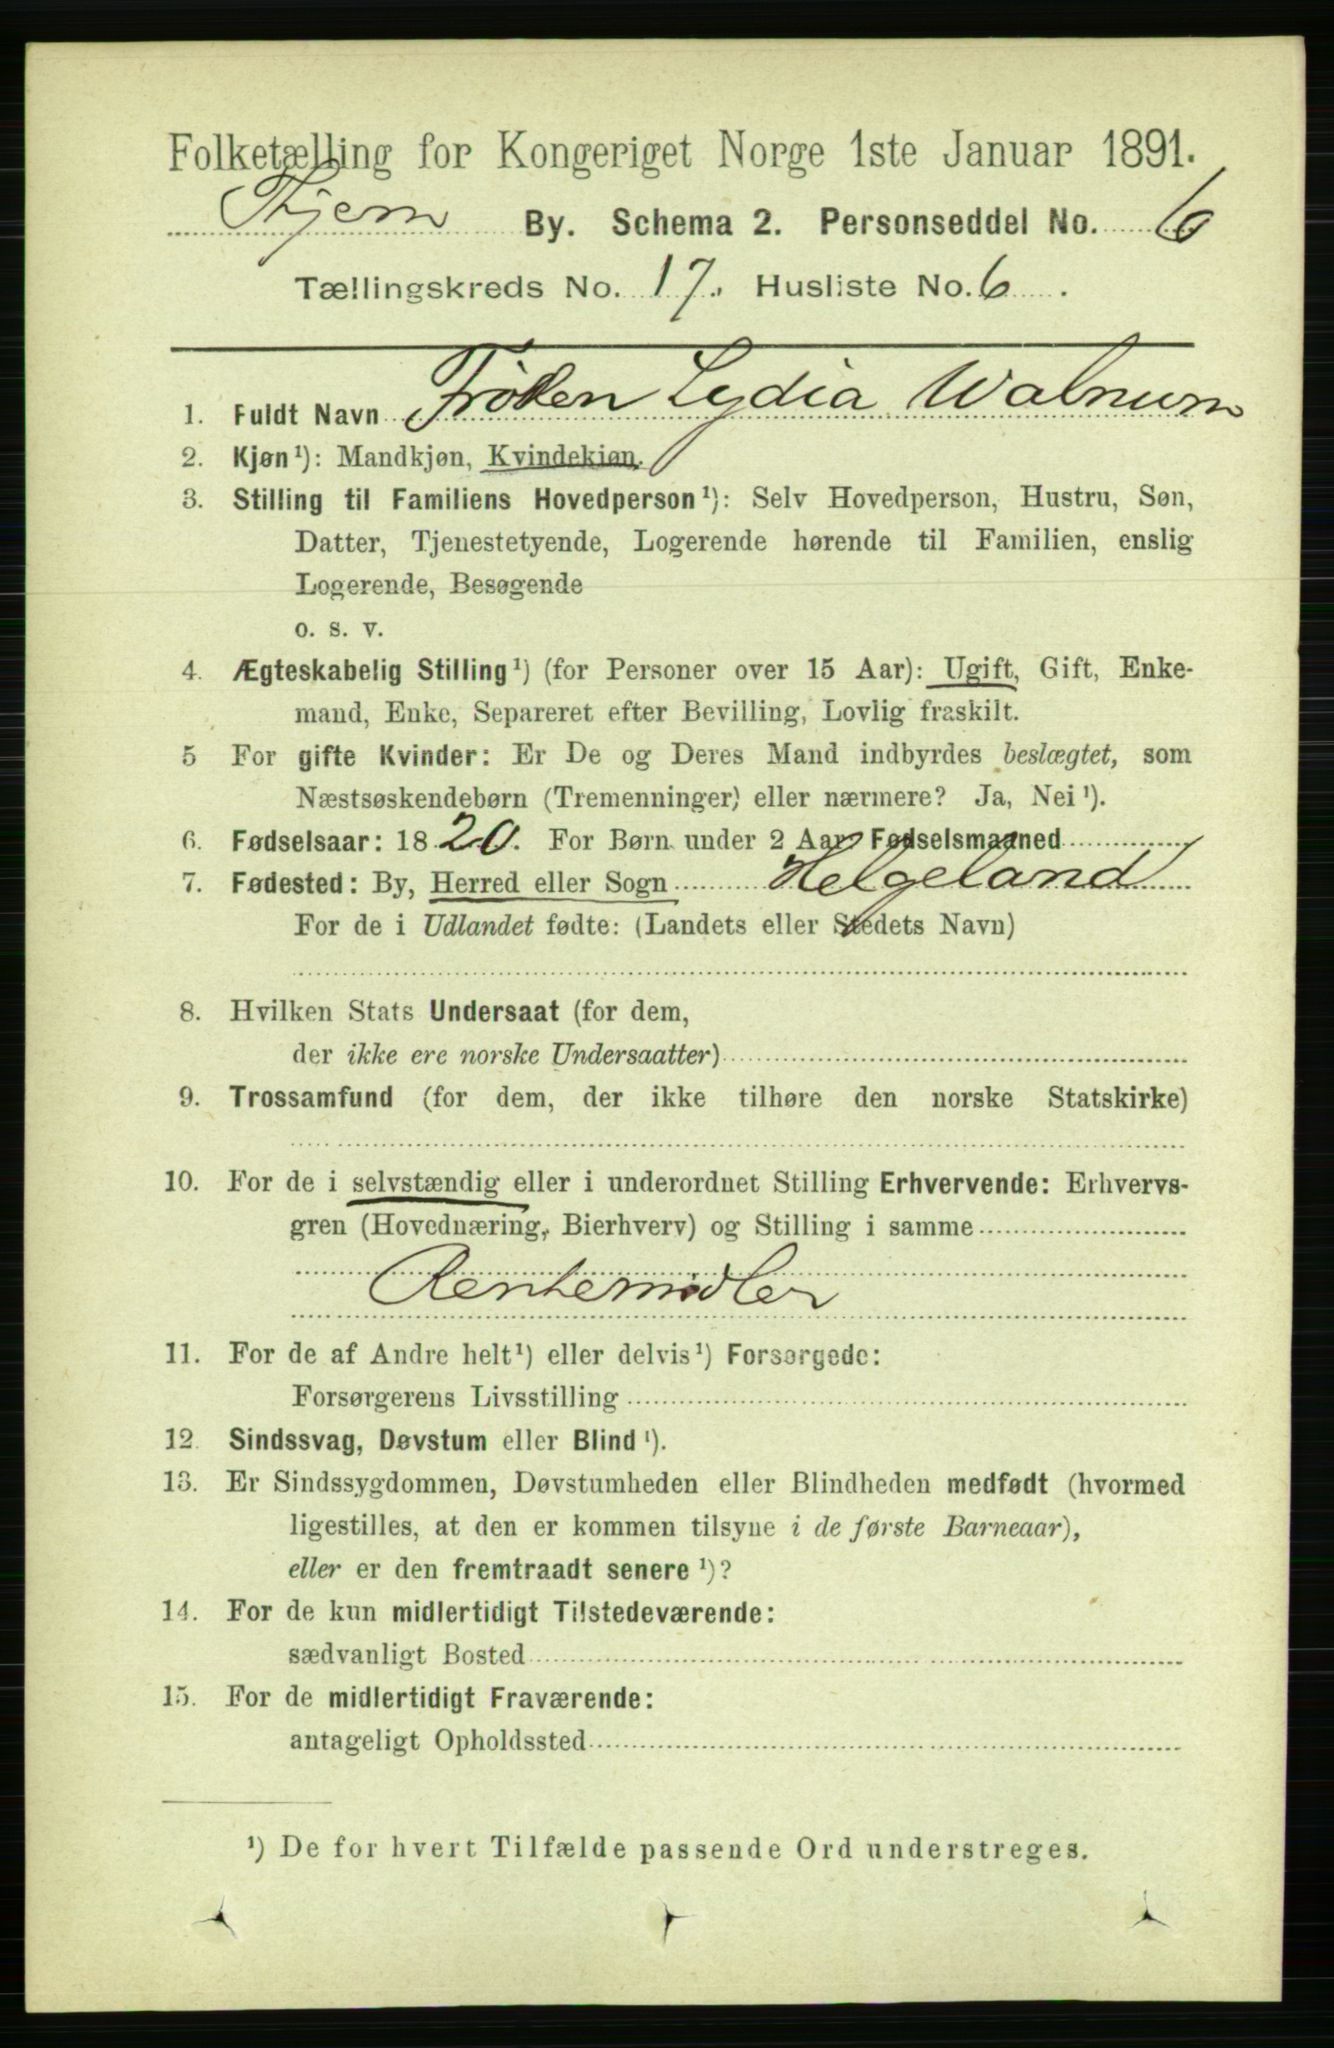 Folketælling for Kongeriget Norge 1ste Januar 1891.
Thjem By. Schema 2. Personseddel No. 6
Tællingskreds No. 17. Husliste No. 6.
1. Fuldt Navn Frøken Lydia Walnum
2. Kjøn¹): Mandkjøn, Kvindekjøn.
3. Stilling til Familiens Hovedperson¹): Selv Hovedperson, Hustru, Søn,
Datter, Tjenestetyende, Logerende hørende til Familien, enslig
Logerende, Besøgende
o. s. v.
4. Ægteskabelig Stilling¹) (for Personer over 15 Aar): Ugift, Gift, Enke-
mand, Enke, Separeret efter Bevilling, Lovlig fraskilt.
5 For gifte Kvinder: Er De og Deres Mand indbyrdes beslægtet, som
Næstsøskendebørn (Tremenninger) eller nærmere? Ja, Nei¹).
6. Fødselsaar: 1820. For Børn under 2 Aar, Fødselsmaaned
7. Fødested: By, Herred eller Sogn Helgeland
For de i Udlandet fødte: (Landets eller Stedets Navn)
8. Hvilken Stats Undersaat (for dem,
der ikke ere norske Undersaatter)
9. Trossamfund (for dem, der ikke tilhøre den norske Statskirke)
10. For de i selvstændig eller i underordnet Stilling Erhvervende: Erhvervs-
gren (Hovednæring, Bierhverv) og Stilling i samme
Rentemidler
11. For de af Andre helt¹) eller delvis¹) Forsørgede:
Forsørgerens Livsstilling
12. Sindssvag, Døvstum eller Blind¹).
13. Er Sindssygdommen, Døvstumheden eller Blindheden medfødt (hvormed
ligestilles, at den er kommen tilsyne i de første Barneaar),
eller er den fremtraadt senere¹)?
14. For de kun midlertidigt Tilstedeværende:
sædvanligt Bosted
15. For de midlertidigt Fraværende:
antageligt Opholdssted
¹) De for hvert Tilfælde passende Ord understreges.